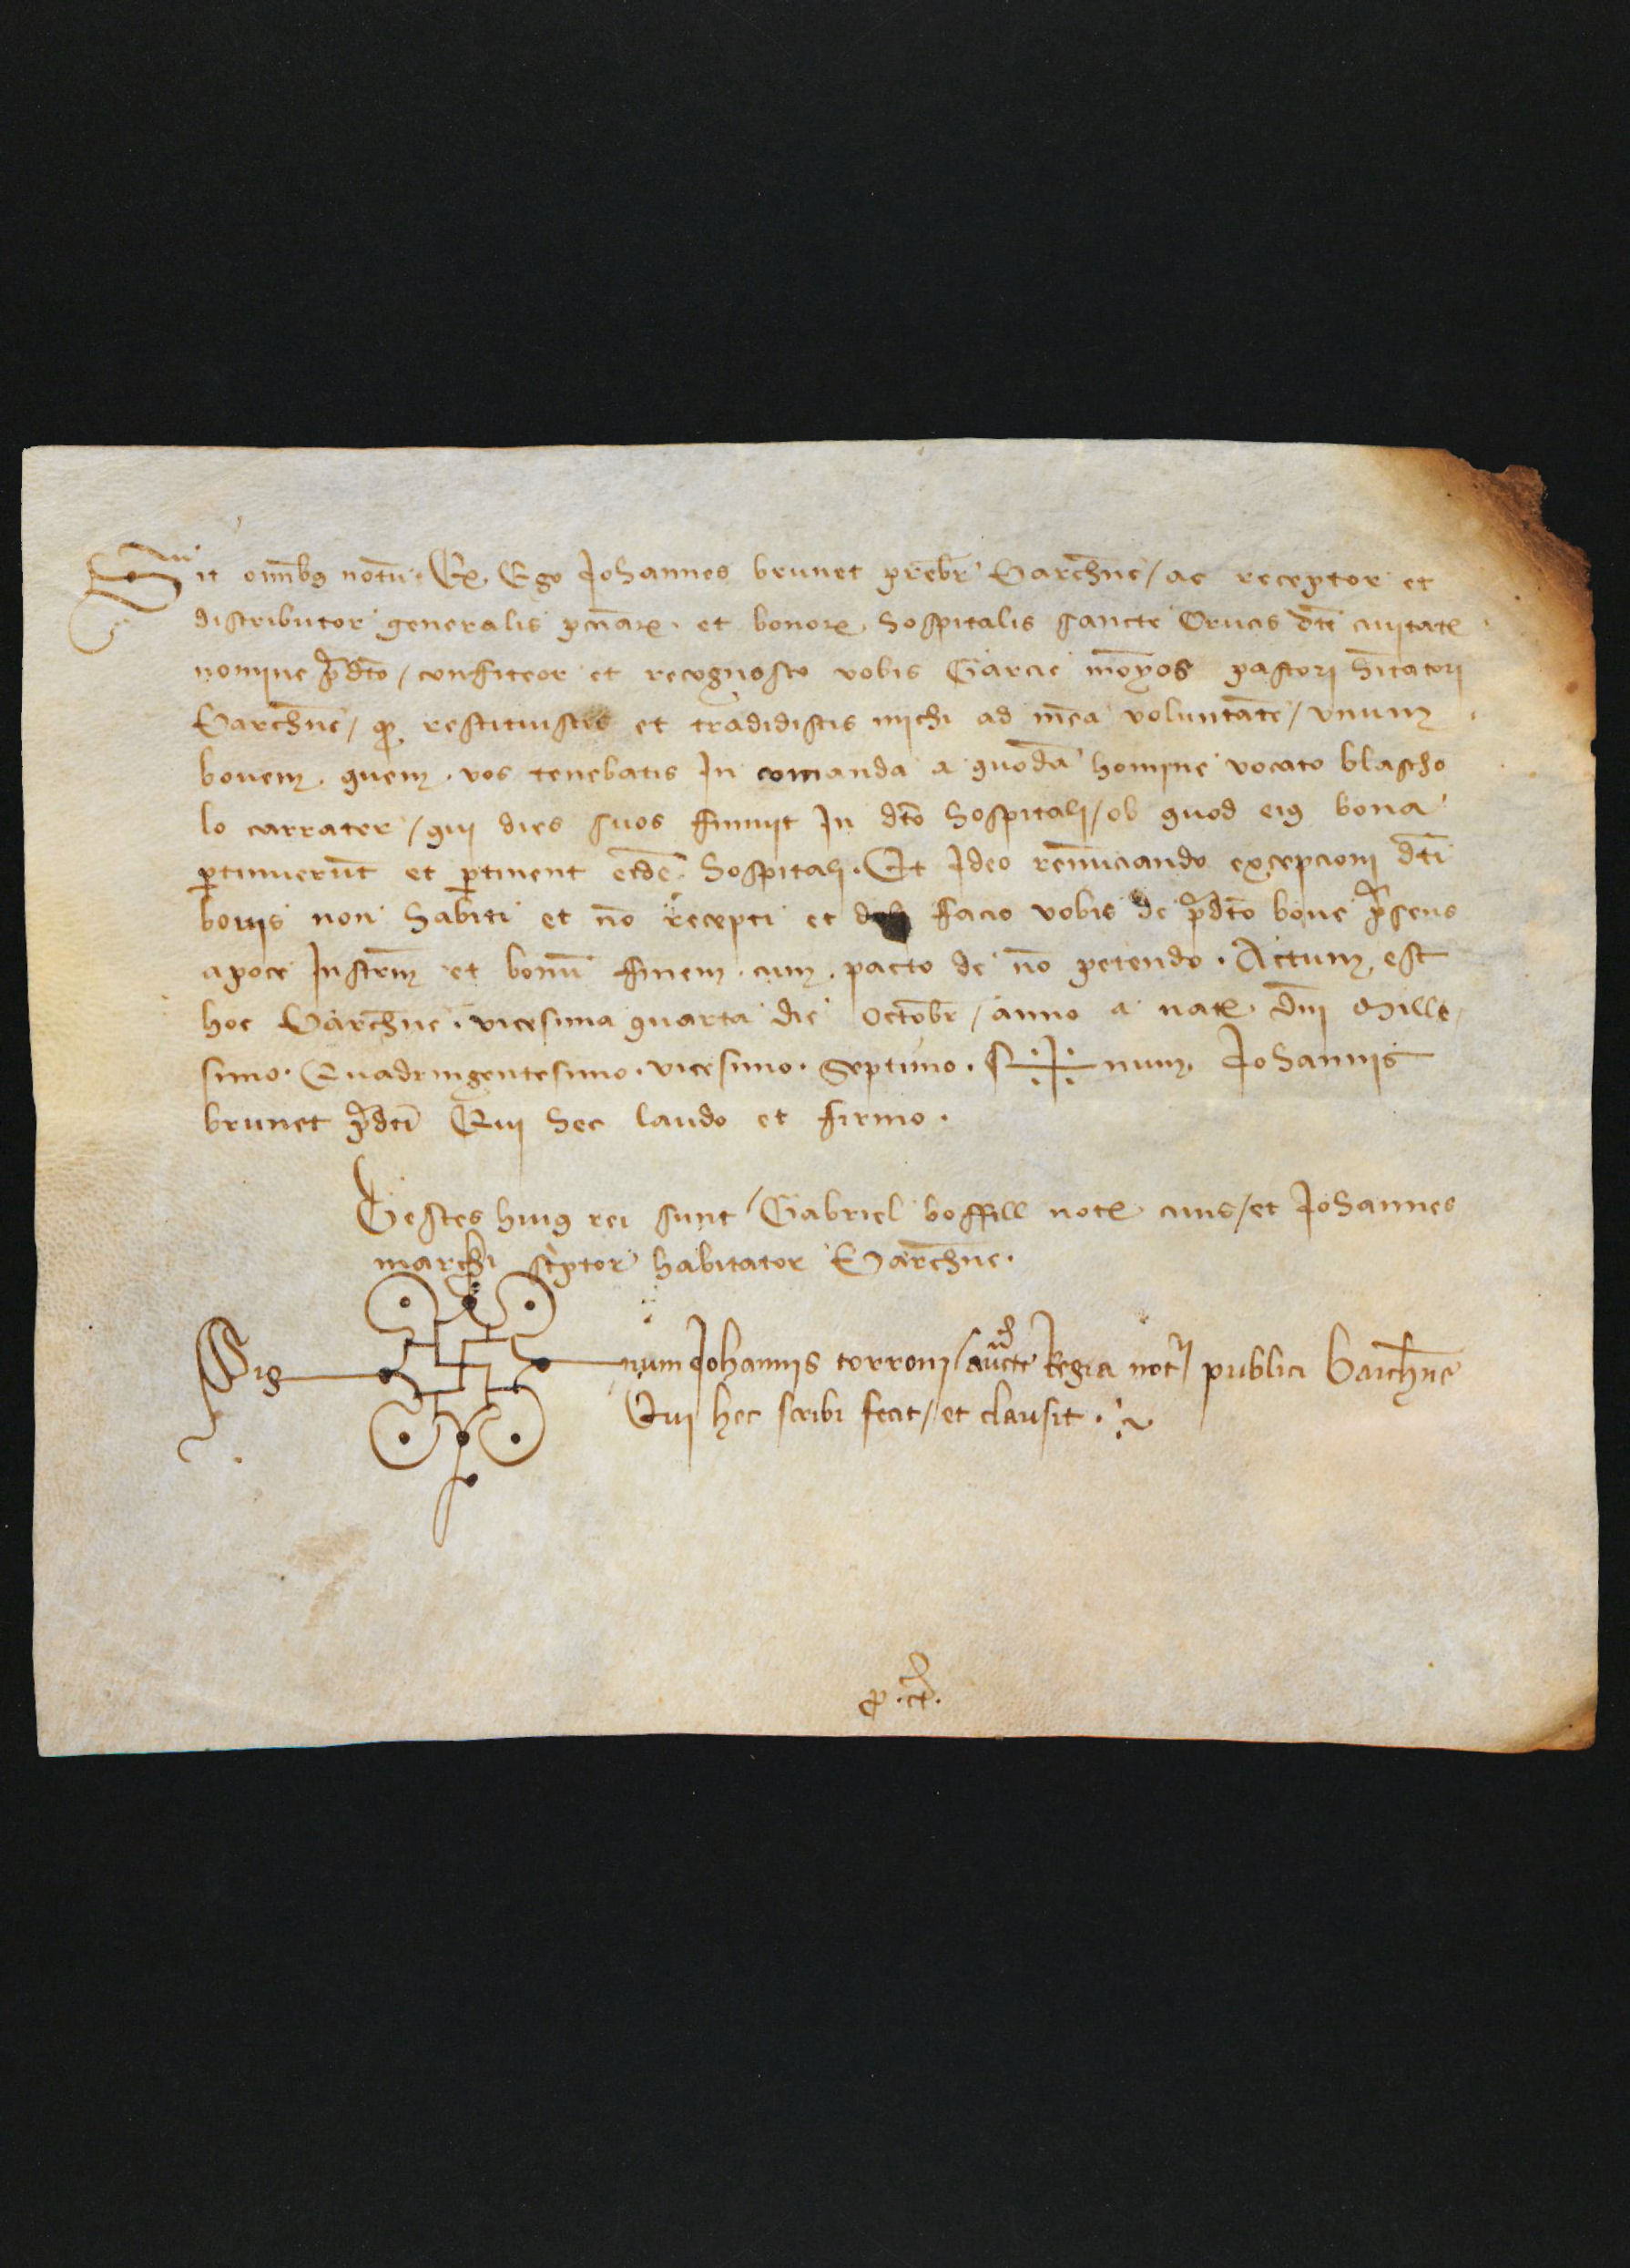 Sit omnibꝯ notū. Qꝫ. Ego Johannes brunet prebr̄ Barchn̄e / ac receptor et
distributor generalis pccūiarꝝ. et bonorꝝ. hospitalis sancte Crucis dc̄e ciuitatꝭ
nomine p̄dc̄o / confiteor et recognosco vobis Garcie moyos pastori hītatori
Barchn̄e / qꝫ restituistis et tradidistis michi ad meā voluntatē / vnum
bouem. quem. vos tenebatis In comanda a quodā homine vocato blascho
lo carrater / qui dies suos finiuit In dc̄o hospitali / ob quod eiꝯ bona
ꝑtinuerūt et ꝑtinent eidē hospitali. Et Ideo renūciando excepcioni dc̄i
bouis non habiti et nō recepti et doli facio vobis de p̄dc̄o boue p̄sens
apoce Instrm̄ et bonū finem. cum. pacto de nō petendo. Actum. est
hoc Barchn̄e. vicesima quarta die Octobr̄ / anno a natꝭ. dn̄i Mille
simo. Quadringentesimo. vicesimo. Septimo. S num. Johannis
brunet p̄dc̄i Qui hec laudo et firmo.
Testes huiꝯ rei sunt / Gabriel boffill notꝭ ciuis / et Johannes
marchi sc̄ptor habitator Barchn̄e.
Sig num Johannis torroni / auct̄e Regia not̄ publici barchn̄e
Qui hec scribi fecit / et clausit.